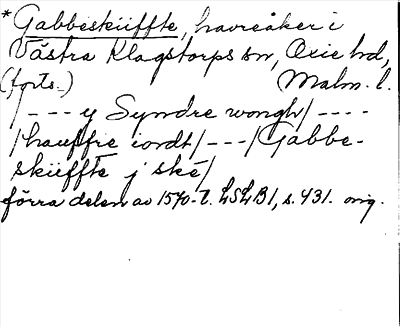 * Gabbeskiiffte, havreåker i
Västra Klagstorps sn, Oxie hd,
(forts.) Malm. l.
/--- y Syndre wongh/----
/hauffre iordt/---/Gabbe-
skiiffte j ské/
förra delen av 1570-t. LSLB1, s. 431. orig.